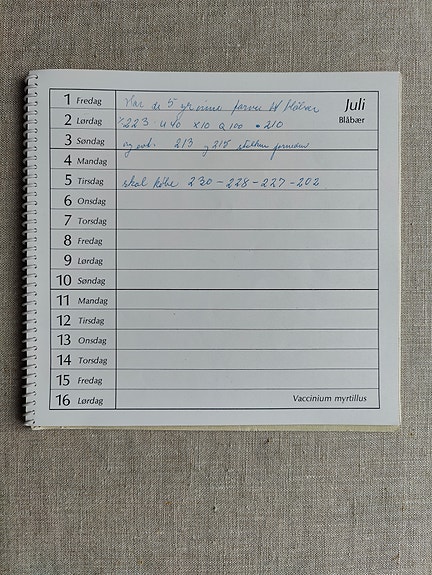 Juli
Blåbær
1 Fredag Har de 5 farver
2 Lørdag 223 x10 100 • 210
3 Søndag og evt. 213 215
4 Mandag
5 Tirsdag skal købe 230 - 228 - 227 - 202
6 Onsdag
7 Torsdag
8 Fredag
9 Lørdag
10 Søndag
11 Mandag
12 Tirsdag
13 Onsdag
14 Torsdag
15 Fredag
16 Lørdag
Vaccinium myrtillus